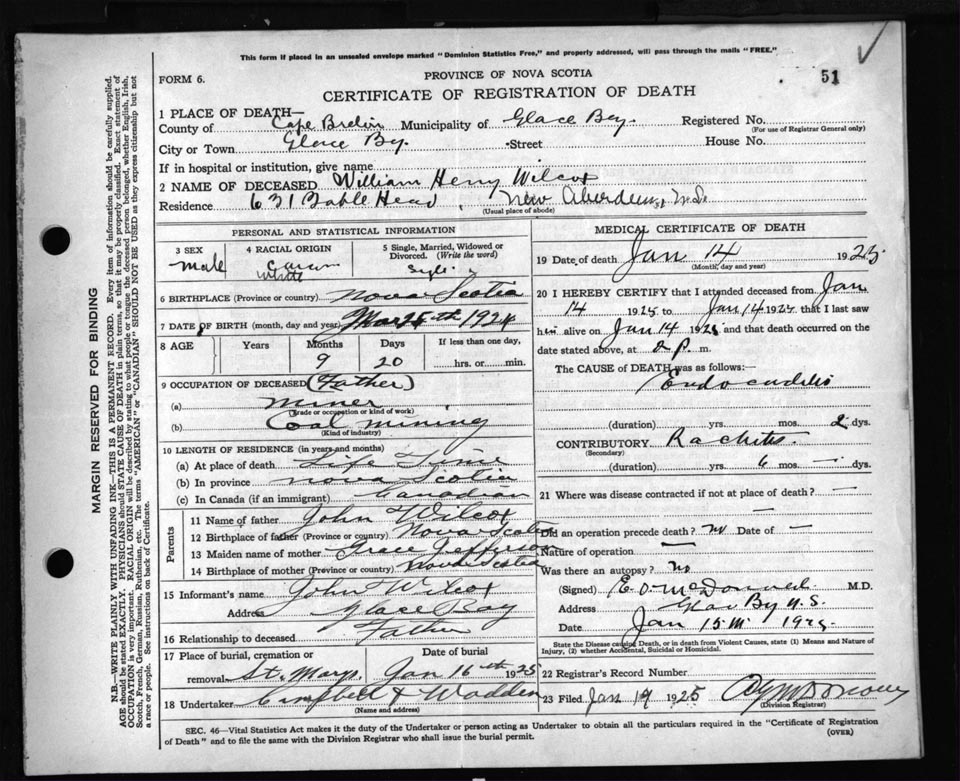 This form if placed in an unsealed envelope marked "Dominion Statistics Free," and properly addressed, will pass through the mails "FREE."
FORM 6.
PROVINCE OF NOVA SCOTIA
51
CERTIFICATE OF REGISTRATION OF DEATH
1 PLACE OF DEATH—
County of Cape Breton Municipality of Glace Bay. Registered No.
(For use of Registrar General only)
City or Town Glace By. Street House No.
If in hospital or institution, give name
2 NAME OF DECEASED William Henry Wilcox
Residence 631 Table Head, New Aberdeen, N.S.
(Usual place of abode)
PERSONAL AND STATISTICAL INFORMATION
3 SEX
male
4 RACIAL ORIGIN
White
5 Single, Married, Widowed or Divorced. (Write the word)
Single
6 BIRTHPLACE (Province or country) Nova Scotia
7 DATE OF BIRTH (month, day and year) Mar 25th 1924
8 AGE Years Months Days If less than one day,
9 20 hrs. or min.
9 OCCUPATION OF DECEASED (Father)
(a) miner
(Trade or occupation or kind of work)
(b) Coal mining
(Kind of industry)
10 LENGTH OF RESIDENCE (in years and months)
(a) At place of death Life Time
(b) In province Nova Scotia
(c) In Canada (if an immigrant) Canadian
Parents
11 Name of father John Wilcox
12 Birthplace of father (Province or country) Nova Scotia
13 Maiden name of mother Grace
14 Birthplace of mother (Province or country) Nova Scotia
15 Informant's name John Wilcox
Address Glace Bay
16 Relationship to deceased Father
17 Place of burial, cremation or removal Date of burial
St. Marys. Jan 16th 1925
18 Undertaker Campbell & Wadden
(Name and address)
MEDICAL CERTIFICATE OF DEATH
19 Date of death Jan 14 1925
(Month, day and year)
20 I HEREBY CERTIFY that I attended deceased from Jan
14 1925 to Jan 14 1925 that I last saw
him alive on Jan 14 1925 and that death occurred on
date stated above, at 2 p. m.
The CAUSE of DEATH was as follows:—
Endocarditis
(duration) yrs. mos. 2 dys.
CONTRIBUTORY Rachitis
(Secondary)
(duration) yrs. 6 mos. — dys.
21 Where was disease contracted if not at place of death? —
—
Did an operation precede death? no Date of —
Nature of operation —
Was there an autopsy? No
(Signed) E. O. McDonnell M.D.
Address Glace By N.S.
Date Jan 15 1925
State the Disease causing Death, or in death from Violent Causes, state (1) Means and Nature of Injury, (2) whether Accidental, Suicidal or Homicidal.
22 Registrar's Record Number
23 Filed Jan 19 1925
(Division Registrar)
SEC. 46—Vital Statistics Act makes it the duty of the Undertaker or person acting as Undertaker to obtain all the particulars required in the "Certificate of Registration
of Death" and to file the same with the Division Registrar who shall issue the burial permit.
(OVER)
MARGIN RESERVED FOR BINDING
N.B.—WRITE PLAINLY WITH UNFADING INK—THIS IS A PERMANENT RECORD. Every item of information should be carefully supplied.
AGE should be stated EXACTLY. PHYSICIANS should STATE CAUSE OF DEATH in plain terms, so that it may be properly classified. Exact statement of
OCCUPATION is very important. RACIAL ORIGIN will be described by stating to what people or tongue the deceased person belonged, whether English, Irish,
Scotch, French, German, Russian, Ruthenian, etc. The terms "AMERICAN" or "CANADIAN" SHOULD NOT BE USED as they express citizenship but not
a race or people. See instructions on back of Certificate.